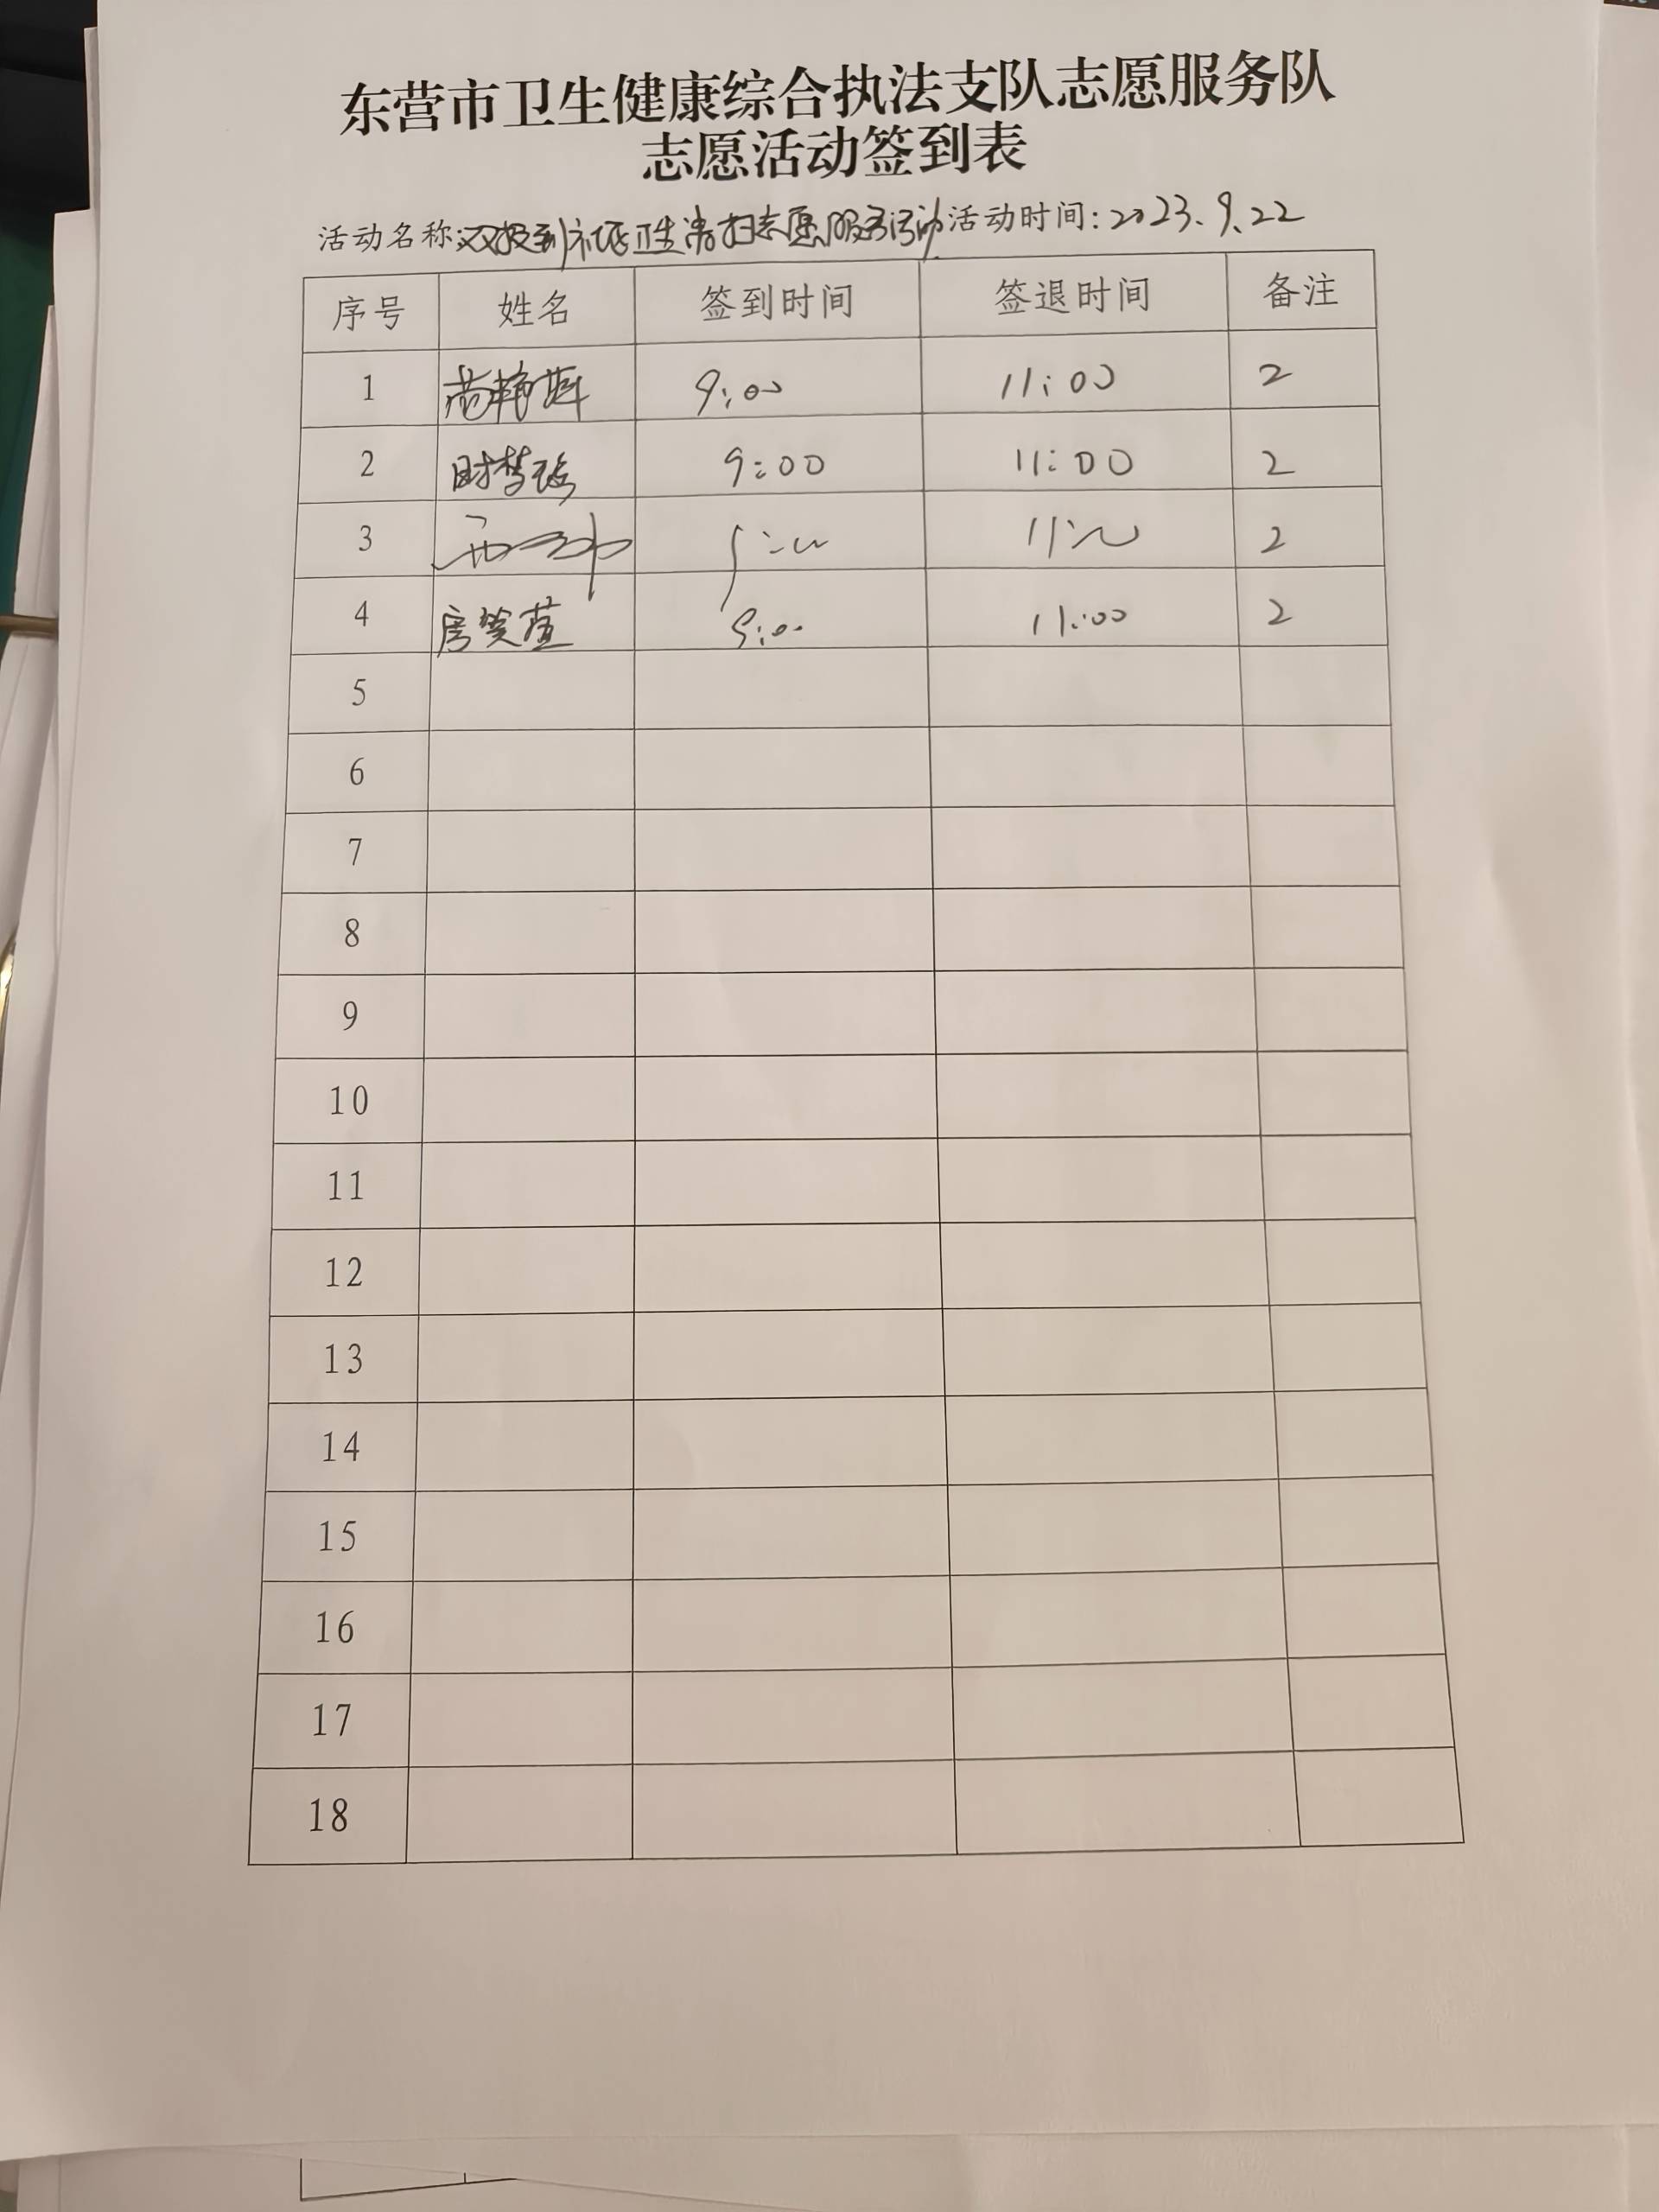 东营市卫生健康综合执法支队志愿服务队
志愿活动签到表
活动名称:双报到社区卫生清扫志愿服务活动 活动时间:2023.9.22
序号 姓名 签到时间 签退时间 备注
1 9:00 11:00 2
2 时梦瑶 9:00 11:00 2
3 9:00 11:00 2
4 房笑萱 9:00 11:00 2
5
6
7
8
9
10
11
12
13
14
15
16
17
18